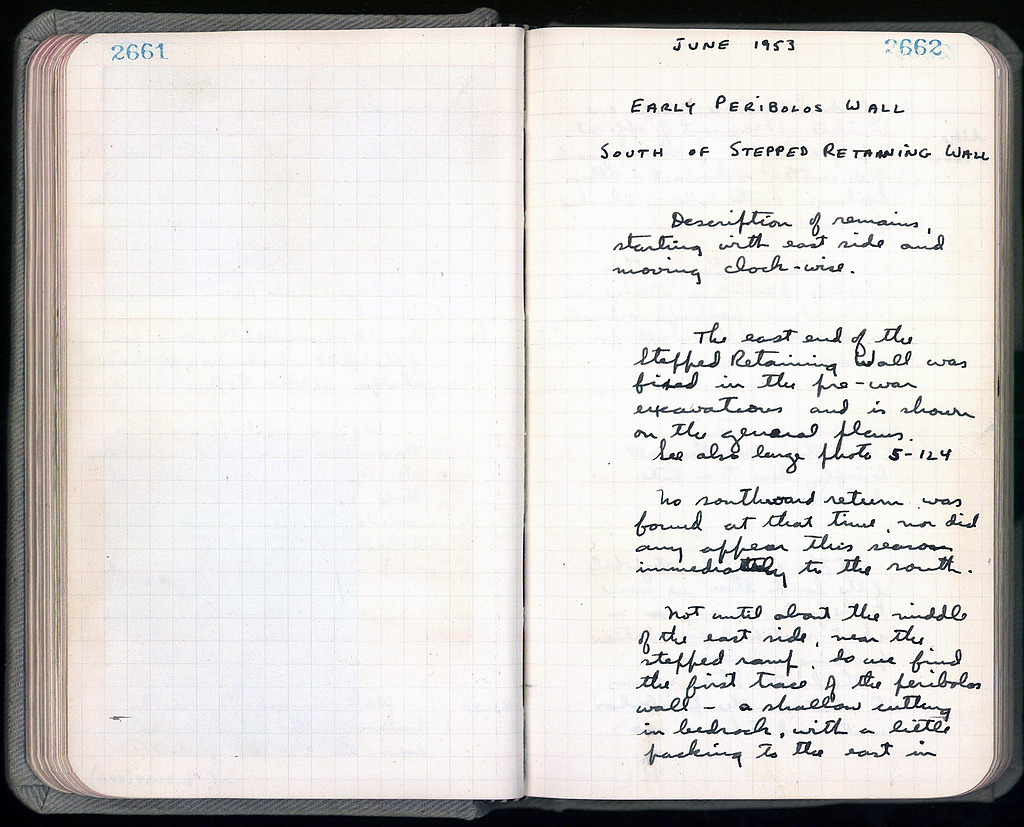 2661
JUNE 1953
2662
EARLY PERIBOLOS WALL
SOUTH OF STEPPED RETAINING WALL
Description of remains,
starting with east side and
moving clock-wise.
The east end of the
Stepped Retaining Wall was
fixed in the pre-war
excavations and is shown
on the general plans.
See also large photo 5-124
No southward return was
found at that time, nor did
any appear this season
immediately to the south.
Not until about the middle
of the east side, near the
stepped ramp, do we find
the first trace of the peribolos
wall - a shallow cutting
in bedrock, with a little
packing to the east in